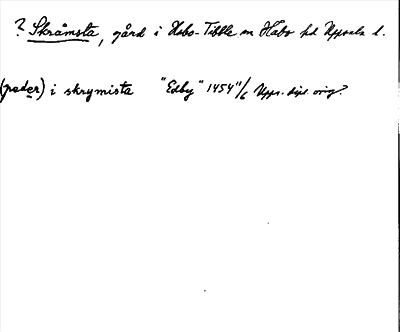 ? Skråmsta, gård i Håbo-Tibble sn Håbo hd Uppsala l.
(peder) i skrymista "Edby" 1454 11/6 Upps. dipl. orig?